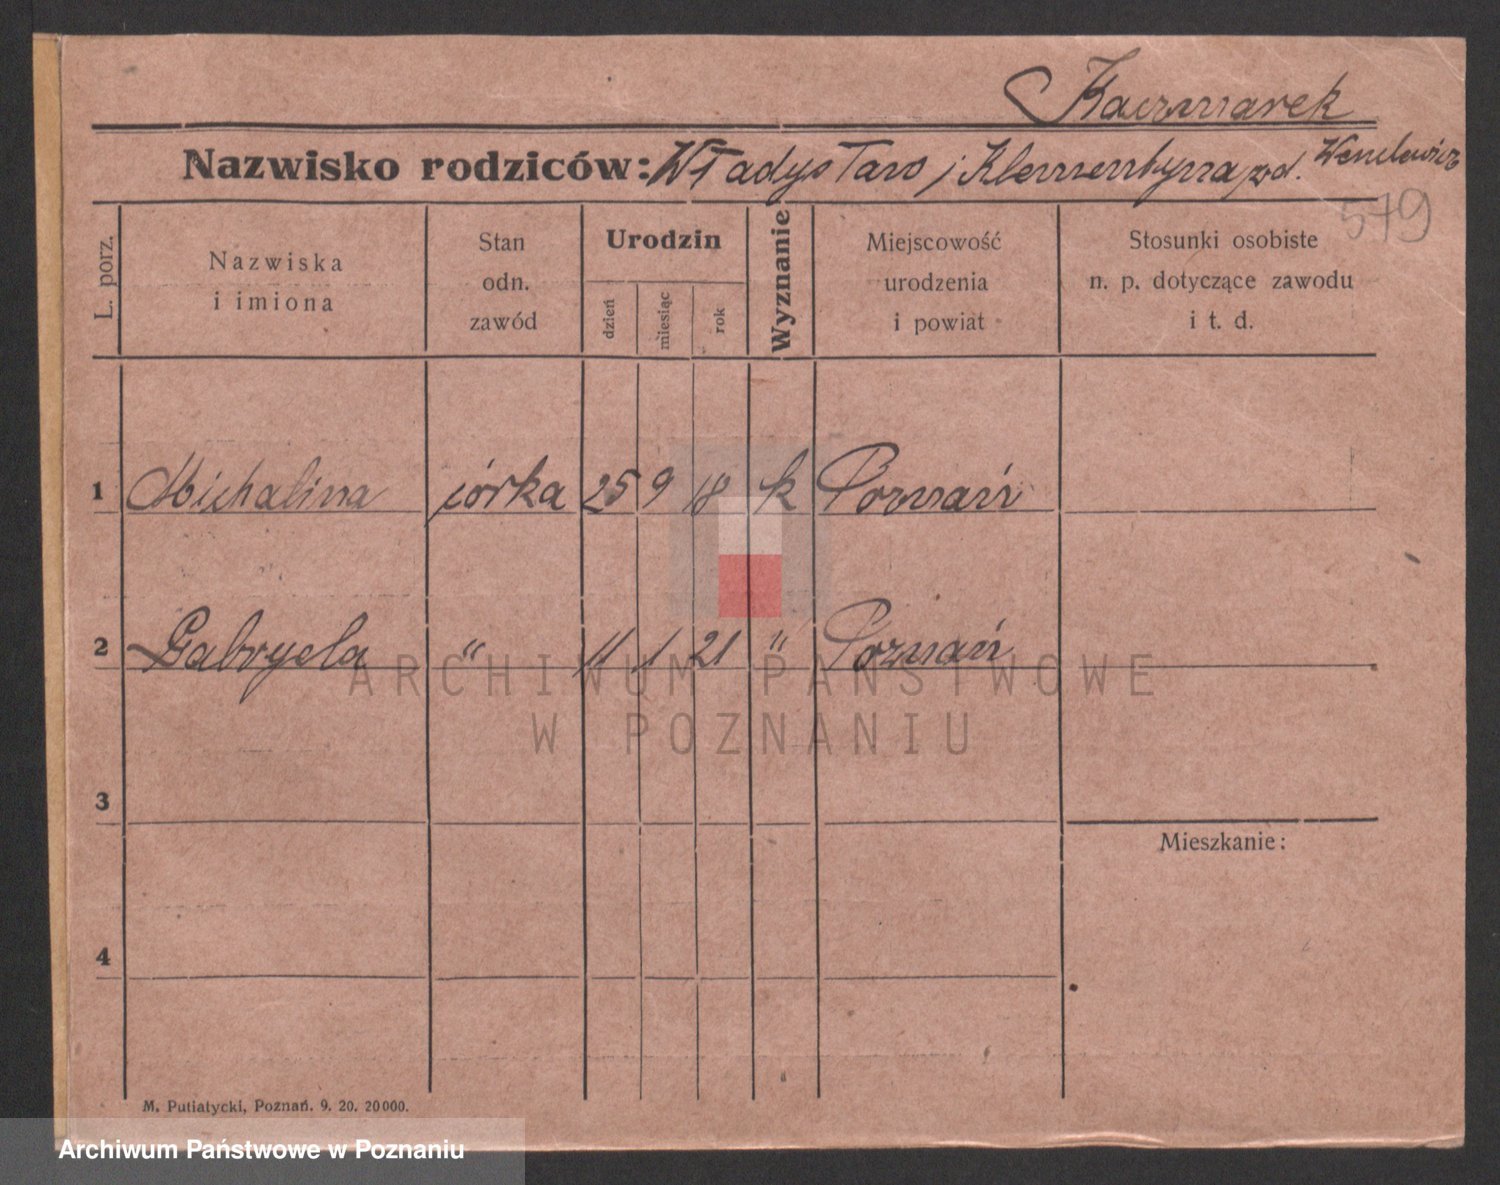 Kaczmarek
Nazwisko rodziców: Władysław i Klementyna zd.
579
L. porz.
Nazwiska
i imiona
Stan
odn.
zawód
Urodzin
dzień
miesiąc
rok
Wyznanie
Miejscowość
urodzenia
i powiat
Stosunki osobiste
n. p. dotyczące zawodu
i t. d.
1 Michalina córka 25 9 18 k Poznań
2 Gabryela " 11 1 21 " Poznań
ARCHIWUM PAŃSTWOWE
W POZNANIU
3
Mieszkanie:
4
M. Putiatycki, Poznań. 9. 20. 20000.
Archiwum Państwowe w Poznaniu